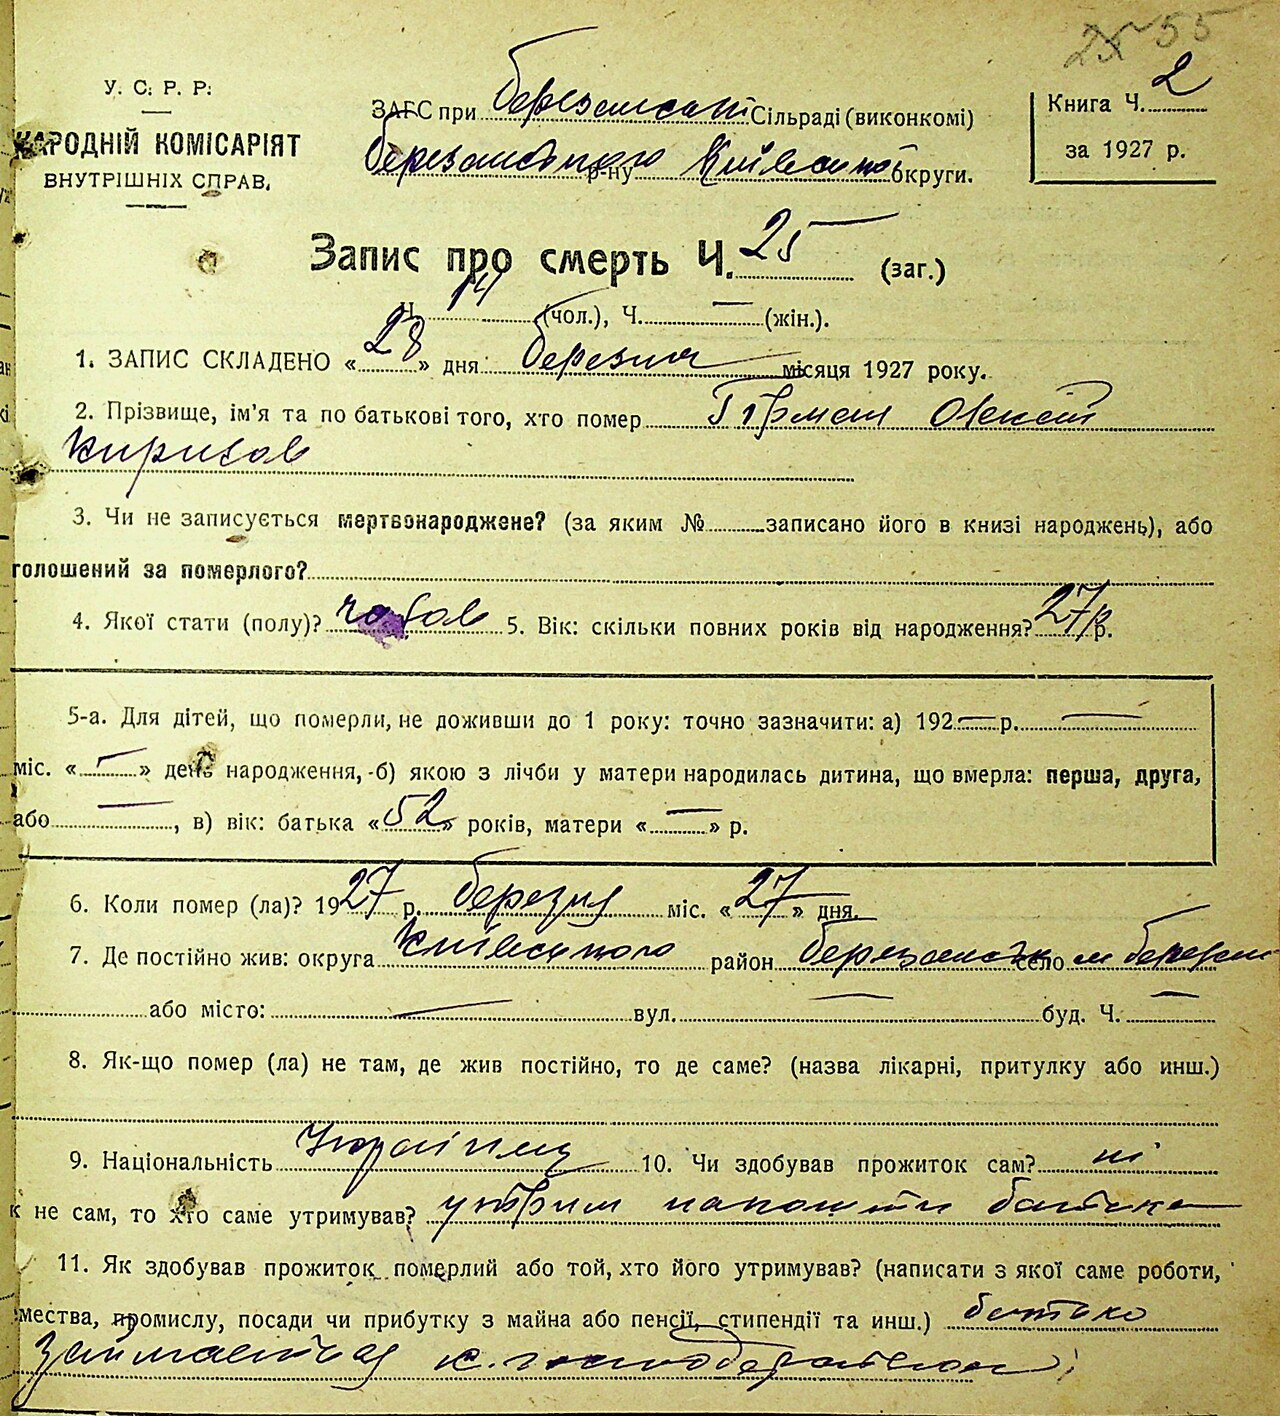 55
У. С. Р. Р.
НАРОДНІЙ КОМІСАРІЯТ
ВНУТРІШНІХ СПРАВ.
ЗАГС при Березанській Сільраді (виконкомі)
Березанського р-ну Київської округи.
Книга Ч. 2
за 1927 р.
Запис про смерть Ч. 25 (заг.)
Ч. 14 (чол.), Ч. — (жін.).
1. ЗАПИС СКЛАДЕНО « 28 » дня березня місяця 1927 року.
2. Прізвище, ім'я та по батькові того, хто помер Олексій
Кирилов
3. Чи не записується мертвонароджене? (за яким № записано його в книзі народжень), або
голошений за померлого?
4. Якої стати (полу)? чолов 5. Вік: скільки повних років від народження? 27 р.
5-а. Для дітей, що померли, не доживши до 1 року: точно зазначити: а) 192 — р. —
міс. « — » день народження, б) якою з лічби у матери народилась дитина, що вмерла: перша, друга,
або —, в) вік: батька « 52 » років, матери « — » р.
6. Коли помер (ла)? 1927 р. березня міс. « 27 » дня.
7. Де постійно жив: округа Київського район Березанськ село м Березан
або місто: — вул. — буд. Ч. —
8. Як-що помер (ла) не там, де жив постійно, то де саме? (назва лікарні, притулку або инш.)
9. Національність Українец 10. Чи здобував прожиток сам? ні
к не сам, то хто саме утримував? утрим батька
11. Як здобував прожиток померлий або той, хто його утримував? (написати з якої саме роботи,
мества, промислу, посади чи прибутку з майна або пенсії, стипендії та инш.) батько
займається с. господарством